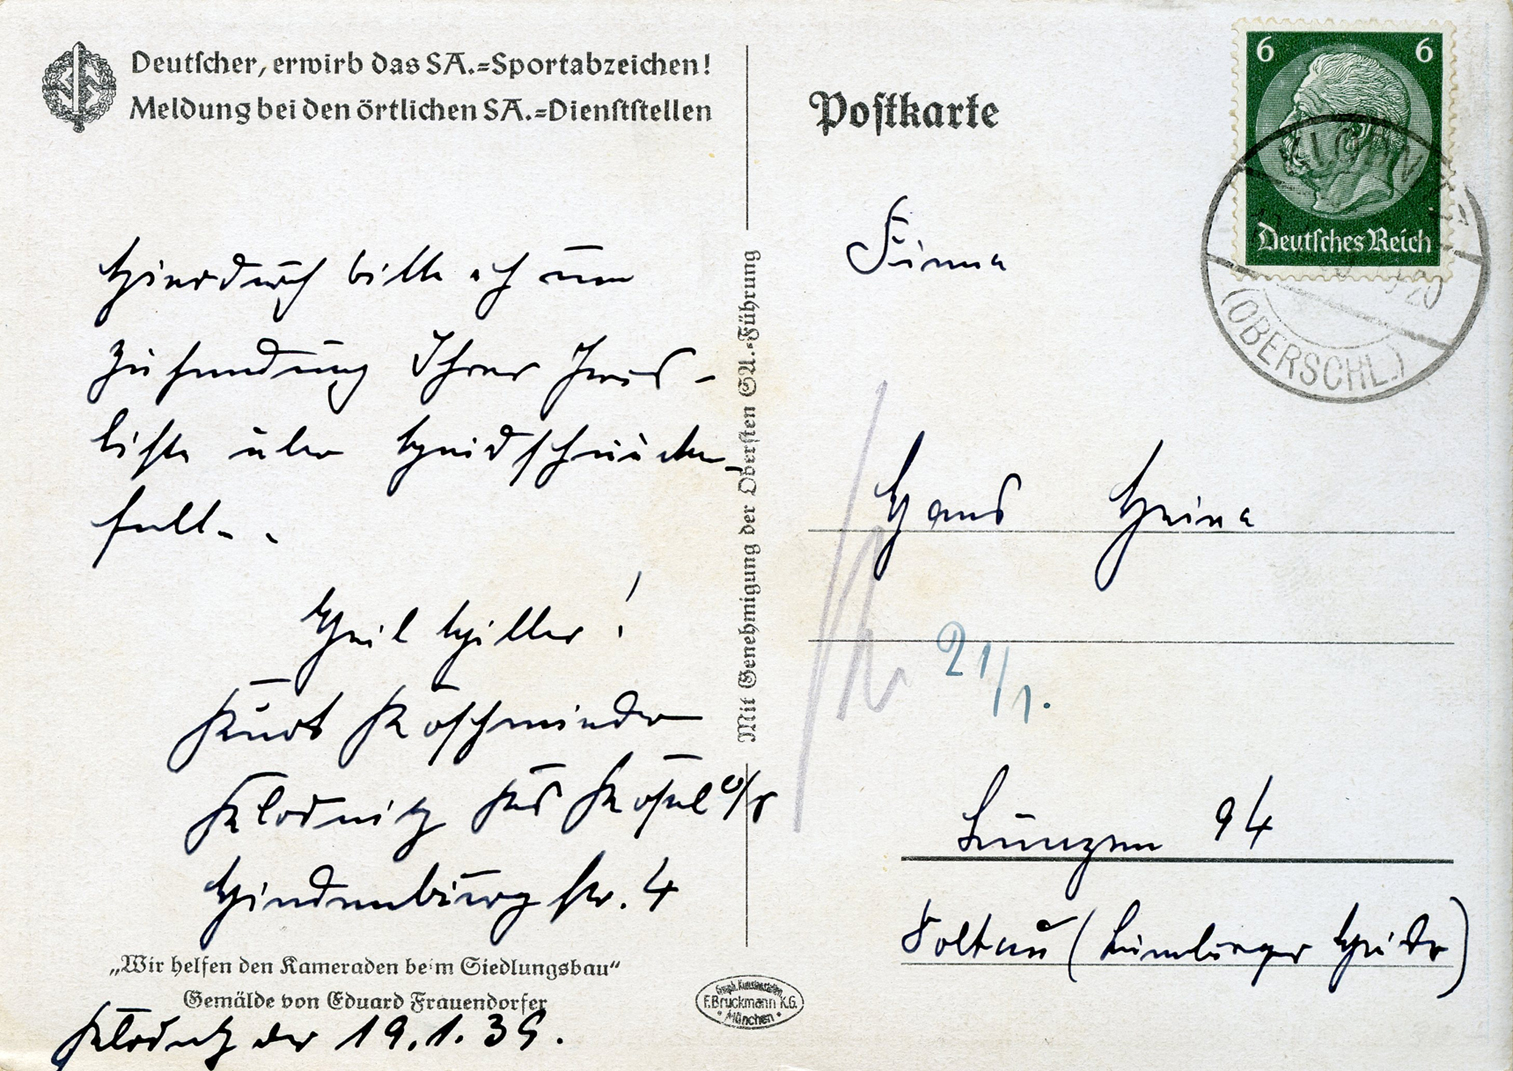 Deutscher, erwirb das SA.=Sportabzeichen!
Meldung bei den örtlichen SA.=Dienststellen
Hierdurch bitte ich um
Zusendung Ihrer Preis-
liste über Heidschnucken-
felle.
Heil Hitler!
Kurt Koschmieder
Klodnitz Krs Kosel O/S
Hindenburgstr. 4
„Wir helfen den Kameraden beim Siedlungsbau“
Gemälde von Eduard Frauendorfer
Klodnitz den 19.1.39.
Mit Genehmigung der Obersten SA.=Führung
F. Bruckmann K.G.
München
Postkarte
6 6
Deutsches Reich
(OBERSCHL.)
Firma
Hans Heine
21/1.
Lünzen 94
Soltau (Lüneburger Heide)